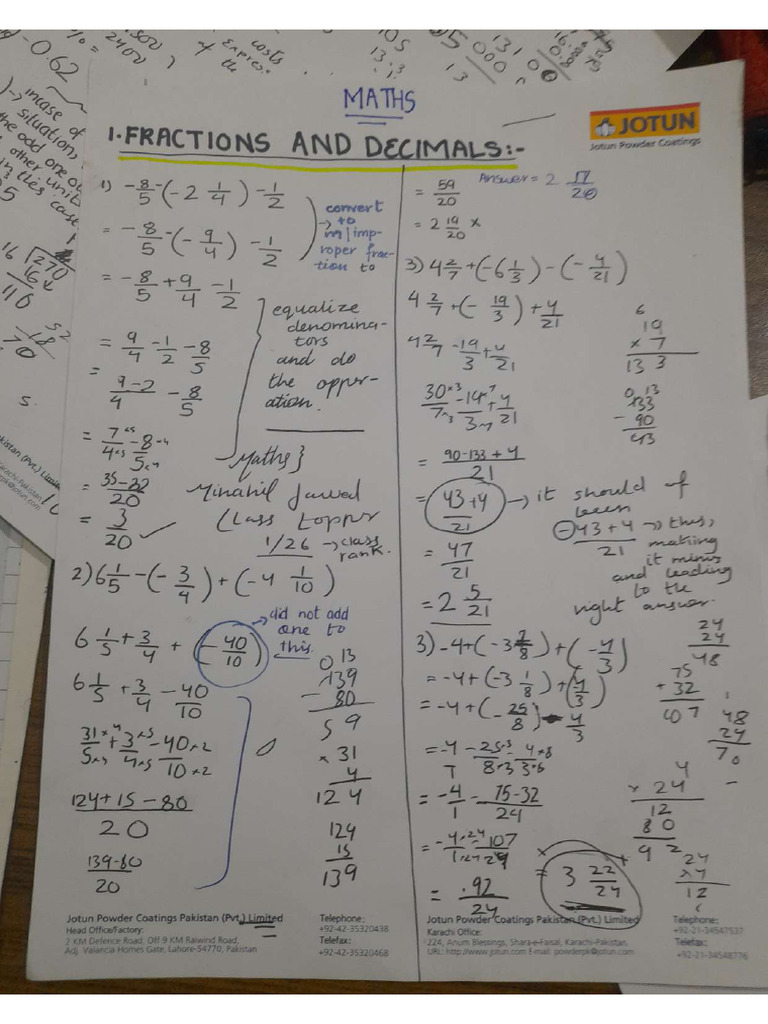 -0.62
costs
Express.
the
2400
105
13
5000
13,00
incase of
situation,
the odd one ou
other unit
in this case
16 270
16↓
110
70
5.
MATHS
JOTUN
Jotun Powder Coatings
1. FRACTIONS AND DECIMALS:-
1) -8/5 - (-2 1/4) - 1/2
= -8/5 - (-9/4) - 1/2
convert
→ to
m/imp-
roper frac-
tion to
= -8/5 + 9/4 - 1/2
= 9/4 - 1/2 - 8/5
= 9-2/4 - 8/5
equalize
denomina-
tors
and do
the opper-
ation.
= 7×5/4×5 - 8×4/5×4
= 35-32/20
= 3/20 ✓
Maths}
Minahil Jawad
Class topper
1/26 → class
rank.
2) 6 1/5 - (-3/4) + (-4 1/10)
6 1/5 + 3/4 + (-40/10)
→ did not add
one to
this.
6 1/5 + 3/4 - 40/10
31×4/5×4 + 3×5/4×5 - 40×2/10×2
124+15-80/20
139-80/20
0 13
139
- 80
59
× 31
4
124
124
15
139
= 59/20
Answer = 2 17/20
= 2 19/20 ×
3) 4 2/7 + (-6 1/3) - (-4/21)
4 2/7 + (-19/3) + 4/21
4 2/7 - 19/3 + 4/21
30×3/7×3 - 19×7/3×7 + 4/21
= 90-133+4/21
= 43+4/21 → it should of
been
-43+4/21 → this,
making
it minus
and leading
to the
right answer.
= 47/21
= 2 5/21
6
19
× 7
133
0 13
133
- 90
43
3) -4 + (-3 1/8) + (-4/3)
= -4 + (-3 1/8) + (4/3)
= -4 + (-25/8) - 4/3
= -4/1 - 25×3/8×3 - 4×8/3×8
= -4/1 - 75-32/24
= -4×24/1×24 - 107/24
= .92/24
= 3 22/24
24
24
48
75
+ 32
107
48
24
70
4
× 24
12
80
92
24
×4
12
Jotun Powder Coatings Pakistan (Pvt.) Limited
Head Office/Factory:
2 KM Defence Road, Off 9 KM Raiwind Road,
Adj. Valancia Homes Gate, Lahore-54770, Pakistan
Telephone:
+92-42-35320438
Telefax:
+92-42-35320468
Jotun Powder Coatings Pakistan (Pvt.) Limited
Karachi Office:
224, Anum Blessings, Shara-e-Faisal, Karachi-Pakistan.
URL: http://www.jotun.com E-mail: powderpk@jotun.com
Telephone:
+92-21-34547537
Telefax:
+92-21-34548776